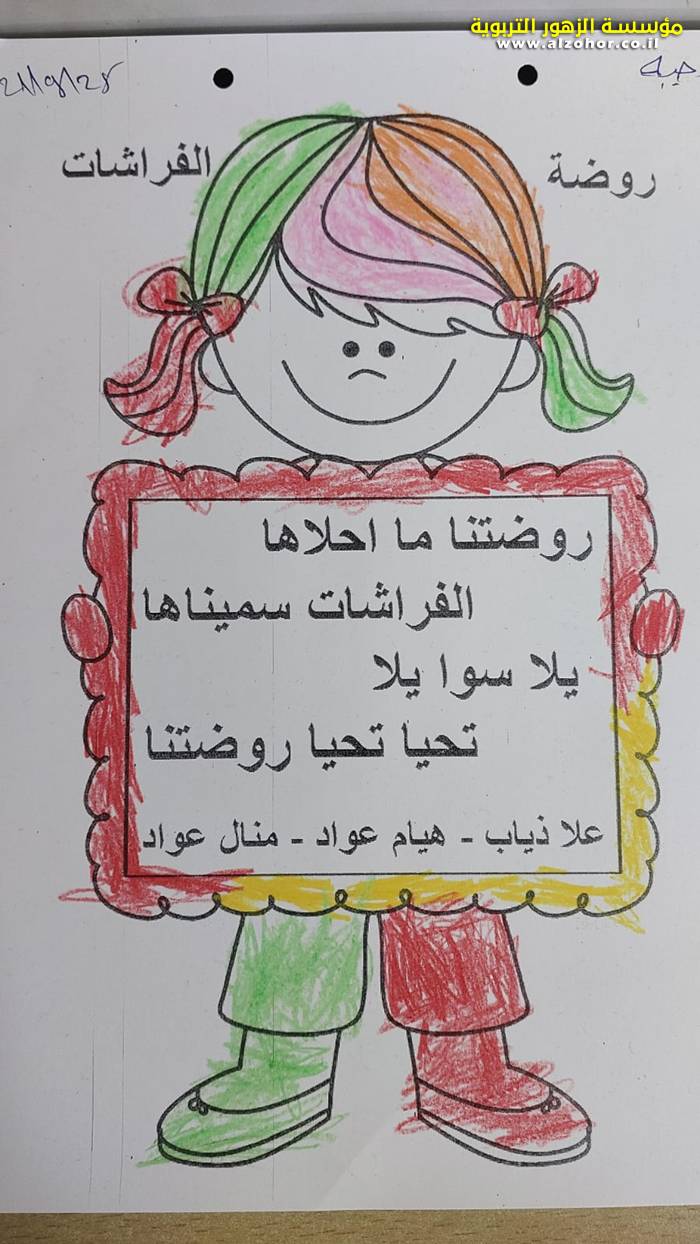 مؤسسة الزهور التربوية
www.alzohor.co.il
روضة الفراشات
روضتنا ما احلاها
الفراشات سميناها
يلا سوا يلا
تحيا تحيا روضتنا
علا ذياب - هيام عواد - منال عواد